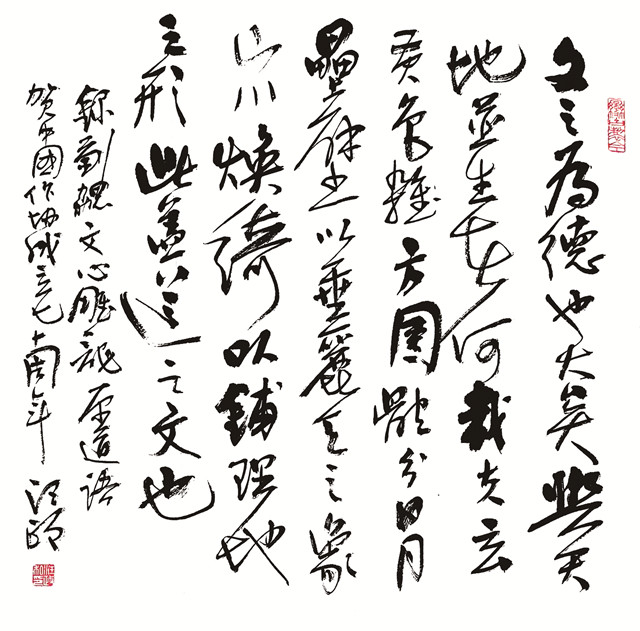 文之為德也大矣與天
地並生者何哉夫玄
黄色雜方圓體分日月
疊璧以垂麗天之象
山川煥綺以鋪理地
之形此蓋道之文也
錄劉勰文心雕龍原道語
賀中國作協成立七十周年 汪政